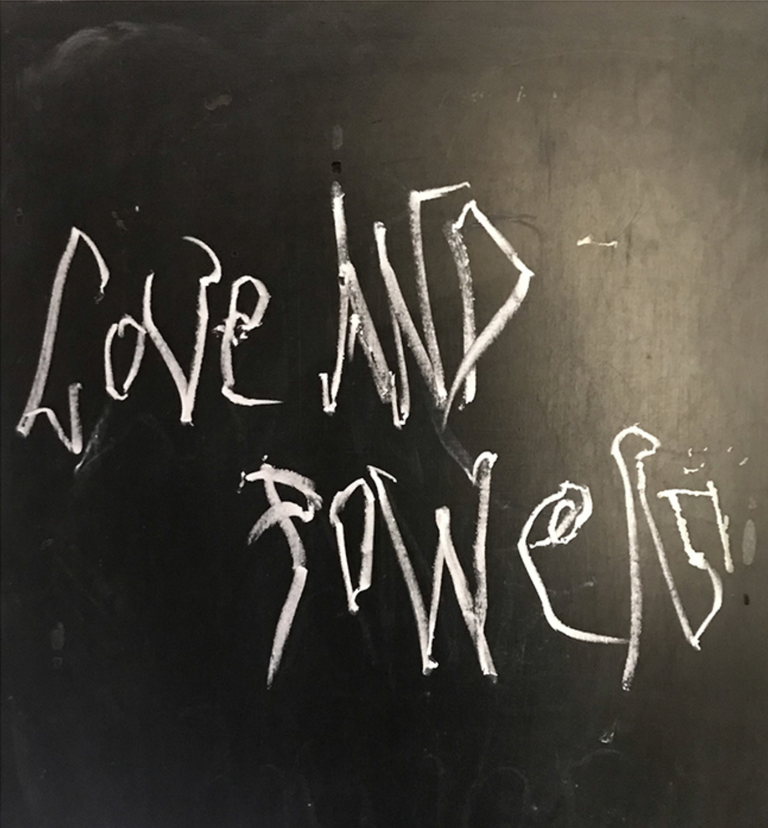 LOVe AND
POWeR